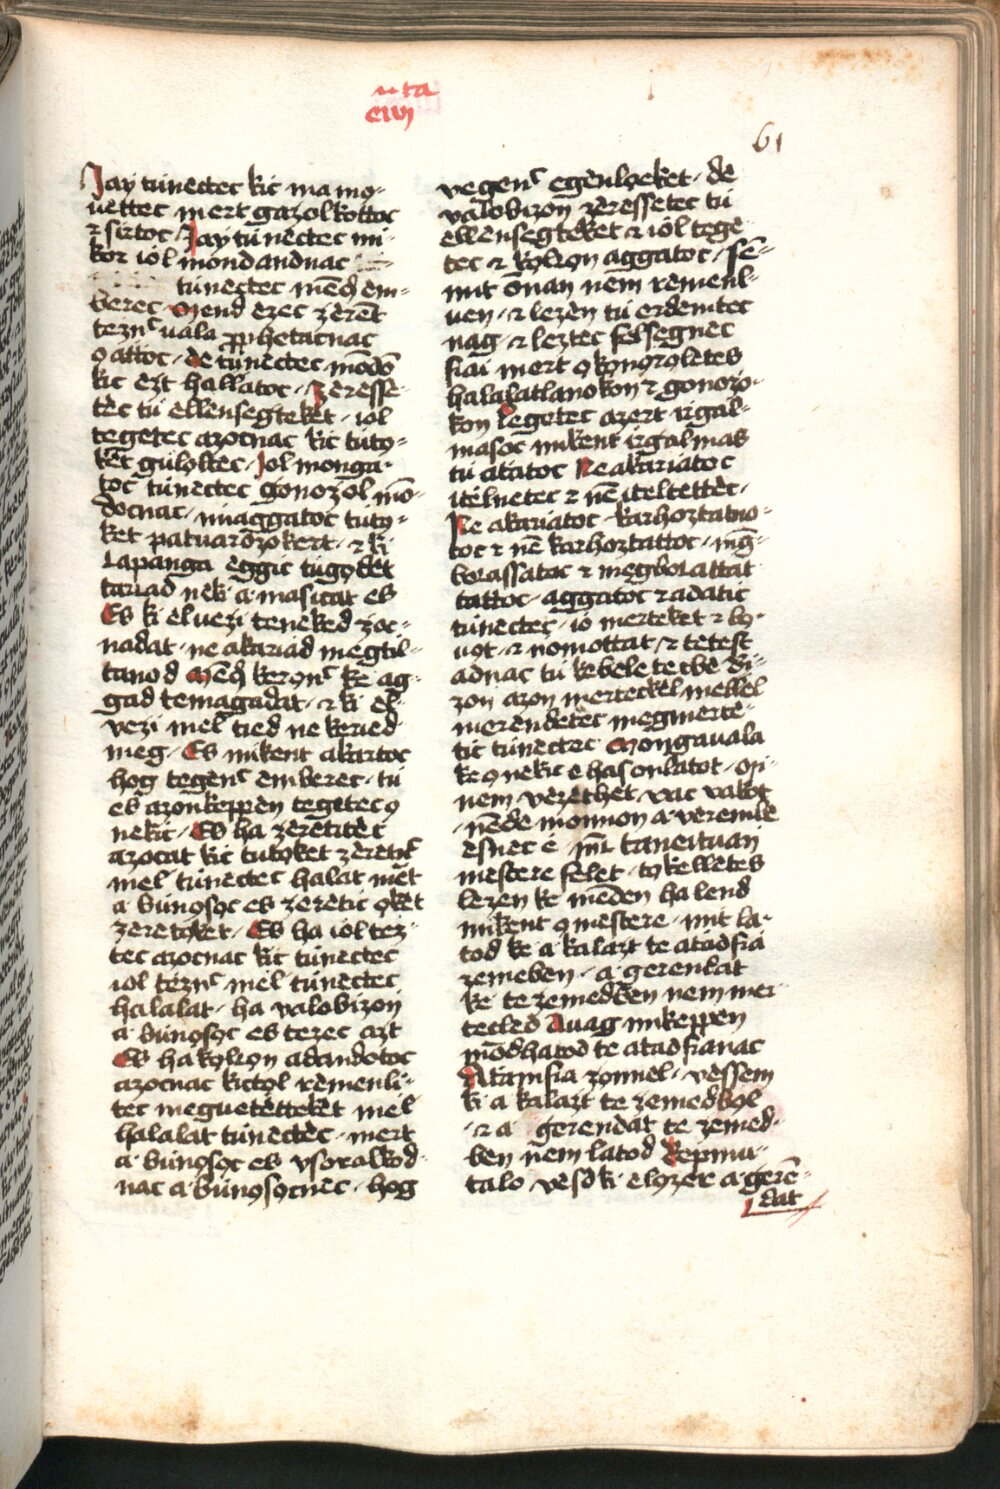 uta
cıvı
61
Jay túnectec kic ma mo-
uettec mert gazolkottoc
⁊ sirtoc Jay túnectec mi-
kor iol mondandnac
túnectec mēd em-
berec Mend ezec zerēt
teznc uala pphetacnac
ọattoc · de túnectec mōdō
kic ezt hallatoc · zeresse-
tèc tú ellensegteket · iol
tegetec azocnac kic tútọ-
ket gúlọltec · Jol monga-
toc túnectec gonozol mō-
docnac · imaggatoc tútọ-
ket patuarozokert · ⁊ ki
Lapanga èggic túgọdet
tariad neki a masicat es
Es ki eluezi teneked zoc-
nadat · ne akariad megtil-
tanod Mēd keronc ke ag-
gad temagadat · ⁊ ki el-
vezi mel tied ne keried
meg · Es mikent akartoc
hog tegenc emberec · tú
es azonkeppen tegetec ọ
nekic · Es ha zeretitèc
azocat kic tútọket zeretic
mel túnectec halat mēt
a búnọsọc es zeretic ọket
zeretọket · Es ha iol tez-
tec azocnac kic túnectec
iol teznc mel túnectec
halalat · ha valobizon
a búnọsọc es tezec azt
Es ha kọlcọn adandotoc
azocnac kictọl remenli-
tec meguetètteket mel
halalat túnectèc · mert
a búnọsọc es vsoralkod-
nac a búnọsọcnec · hog
vegenc egènlọeket · de
valobizon zèressetec tú
ellensegteket ⁊ iol tege-
tec ⁊ kọlcọn aggatoc · sē-
mit onnan nem remenl-
uen · ⁊ lezen tú erdemtec
nag · ⁊ leztec felsegnec
fiai mert ọ kọnọrọletes
halalatlanokon ⁊ gonozo-
kon Legetec azert irgal-
masoc mikent irgalmas
tú atatoc Ne akariatoc
itelnetec ⁊ nē iteltettèc ·
Ne akariatoc karhoztatno-
toc ⁊ nē karhoztattoc · mg-
bolassatoc ⁊ megbolattat
tattoc · aggatoc ⁊ adatic
túnectec · io merteket ⁊ bọ-
uọt · ⁊ nomottat · ⁊ tetest
adnac tú kebeletecbe bi-
zon azon merteckel mellel
merendetec megmerte-
tic túnectec Mongauala
ke ọ nekic e hasonlatot · mi-
nem vezethet · vac vakot
· nēde monnon a verembe
esnec e nincs taneituan
mestere felet · tọkelletes
lezen ke menden ha lend
mikent ọ mestere · mit la-
tod ke a kalazt te atadfia
zemeben · a gerendat
ke te zemedben nem mer
tecled Auag mikeppen
mōdhatod te atadfianac
Atamfia zonnel · vessem
ki a kalazt te zemedbọl
· ⁊ a gerendat te zemed-
ben nem latod Kepmu-
talo · vesd ki elọzer a gerē-
dat